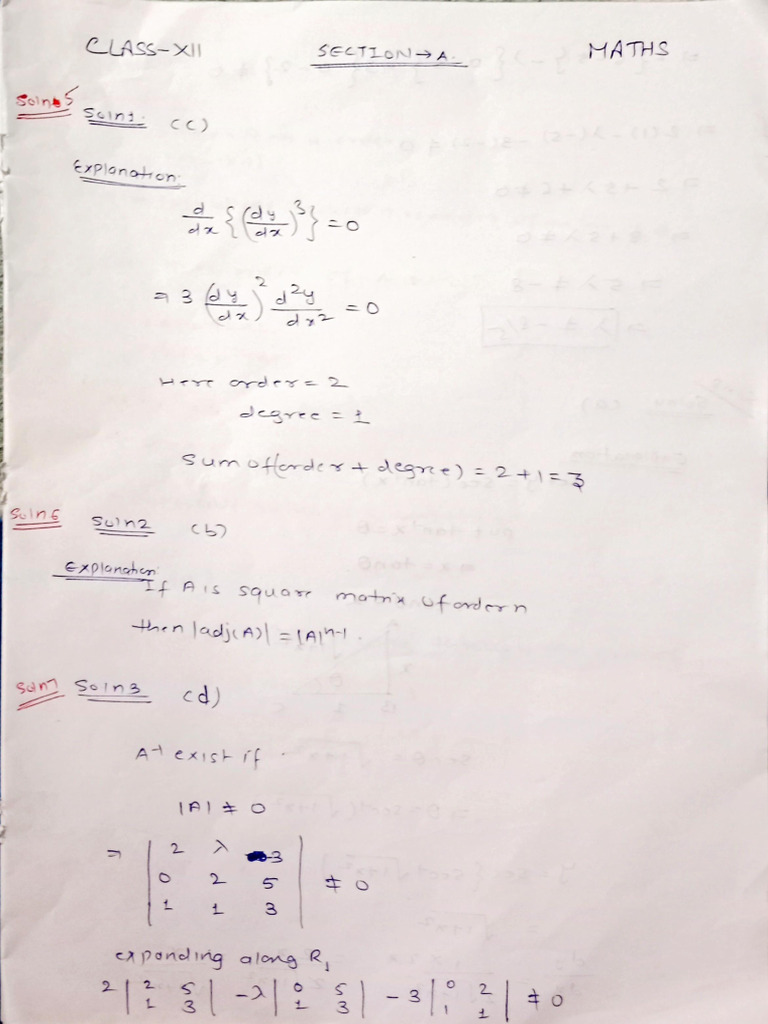 CLASS-XII SECTION→A. MATHS
Soln 5 Soln1. (c)
Explanation:
d/dx {(dy/dx)^3} = 0
⇒ 3 (dy/dx)^2 d^2y/dx^2 = 0
Here order = 2
degree = 1
Sum of (order + degree) = 2 + 1 = 3
Soln 6 Soln2 (b)
Explanation:
If A is square matrix of order n
then |adj(A)| = |A|^n-1.
Soln7 Soln3 (d)
A^-1 exist if
|A| ≠ 0
⇒ | 2 λ -3 |
| 0 2 5 | ≠ 0
| 1 1 3 |
expanding along R1
2 | 2 5 ; 1 3 | - λ | 0 5 ; 1 3 | - 3 | 0 2 ; 1 1 | ≠ 0